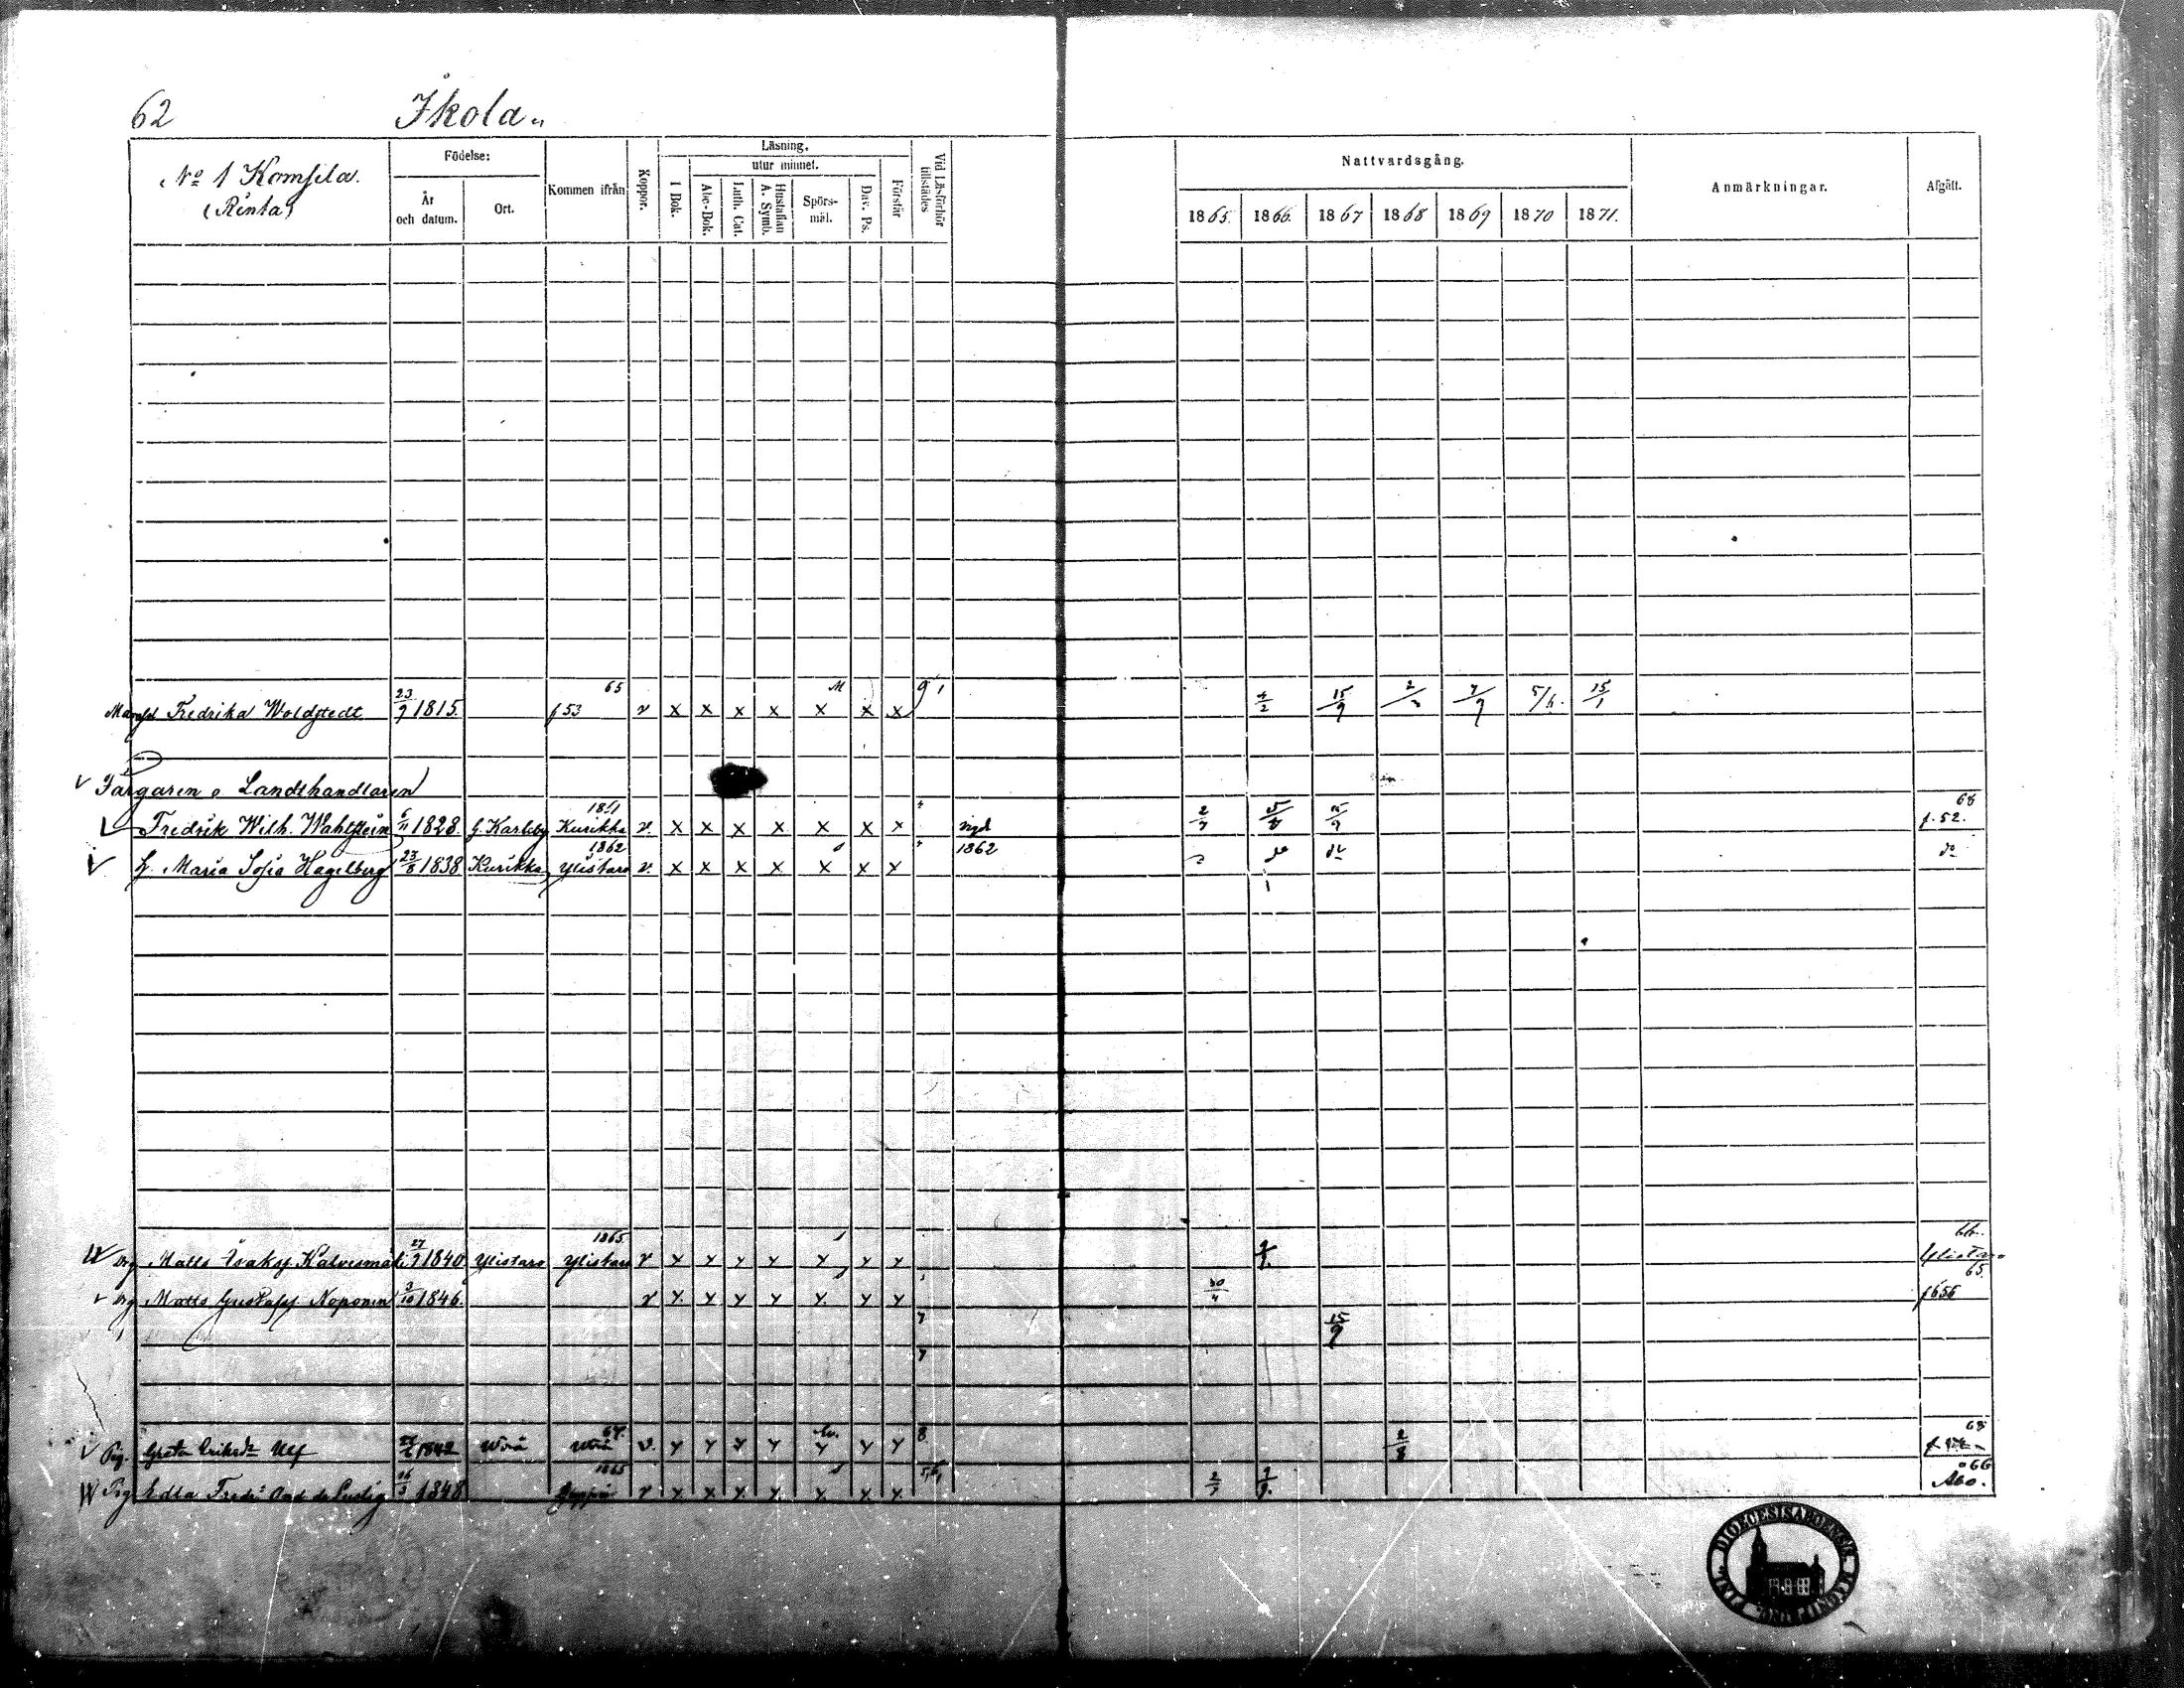 62 Ikola
No 1 Komsila.
(Rinta)
Födelse:
År och datum.
Ort.
Kommen ifrån
Koppor.
Läsning.
I Bok.
utur minnet.
Abc-Bok.
Luth. Cat.
Hustaflan A. Symb.
Spörsmål.
Dav. Ps.
Förstår
Vid Läsförhör tillstädes
Nattvardsgång.
1865. 1866. 1867 1868 1869 1870 1871.
Anmärkningar.
Afgått.
65
Mamsel Fredrika Woldstedt 23/9 1815. f 53 v x x x x x x x 9 4/2 15/9 7/9 5/6. 15/1
Färgaren o Landthandlaren
Fredrik Wilh. Wahlstein 6/11 1828. G. Karleby Kurikka v. x x x x x x x vigd 2/7 15/9 68 f. 52.
H. Maria Sofia Hagelberg 23/8 1838 Kurikka 1862 Ylistaro v. x x x x x x x 1862 do do do
Drg Matts Isaks. Kalvesmäki 27/9 1840. Ylistaro 1865 Ylistaro v 66. Ylistaro
Drg Matts Gustafss. Noponen 3/10 1846. v 30/4 65. f 656
7 15/9
7
Pig. Greta Eriksdr Ulf 1842 Wörå 67. Wörå v. 8 2/8 68
Pig Edla Fredr. 16/3 1848 1865 v 5,6, 2/7 66 Åbo.
DIOECESIS ABOENSIS